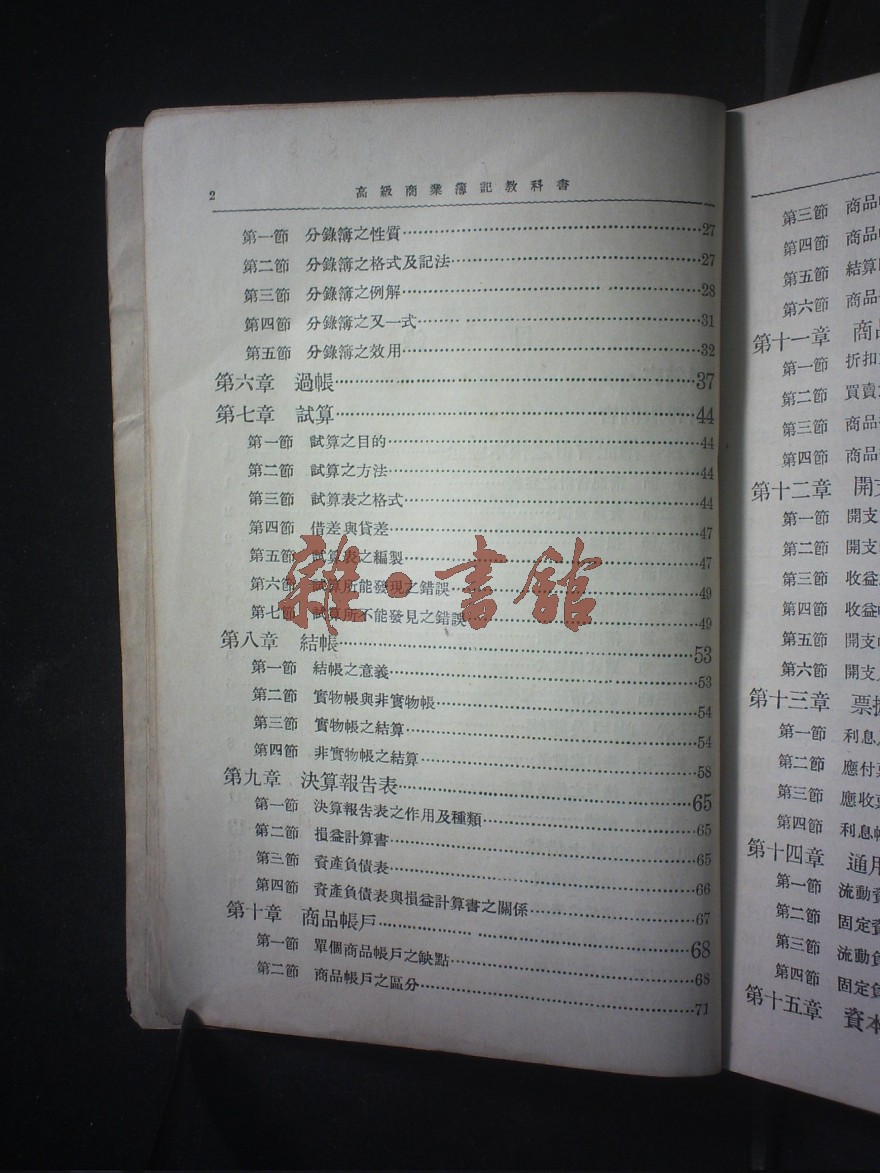 2
高級商業簿記教科書
第一節 分錄簿之性質 27
第二節 分錄簿之格式及記法 27
第三節 分錄簿之例解 28
第四節 分錄簿之又一式 31
第五節 分錄簿之效用 32
第六章 過帳 37
第七章 試算 44
第一節 試算之目的 44
第二節 試算之方法 44
第三節 試算表之格式 44
第四節 借差與貸差 47
第五節 試算表之編製 47
第六節 試算所能發現之錯誤 49
第七節 試算所不能發見之錯誤 49
第八章 結帳 53
第一節 結帳之意義 53
第二節 實物帳與非實物帳 54
第三節 實物帳之結算 54
第四節 非實物帳之結算 58
第九章 決算報告表 65
第一節 決算報告表之作用及種類 65
第二節 損益計算書 65
第三節 資產負債表 66
第四節 資產負債表與損益計算書之關係 67
第十章 商品帳戶 68
第一節 單個商品帳戶之缺點 68
第二節 商品帳戶之區分 71
雜·書館
第三節 商品
第四節 商品
第五節 結算
第六節 商品
第十一章 商
第一節 折扣
第二節 買賣
第三節 商品
第四節 商品
第十二章 開
第一節 開支
第二節 開支
第三節 收益
第四節 收益
第五節 開支
第六節 開支
第十三章 票
第一節 利息
第二節 應付
第三節 應收
第四節 利息
第十四章 通
第一節 流動
第二節 固定
第三節 流動
第四節 固定
第十五章 資